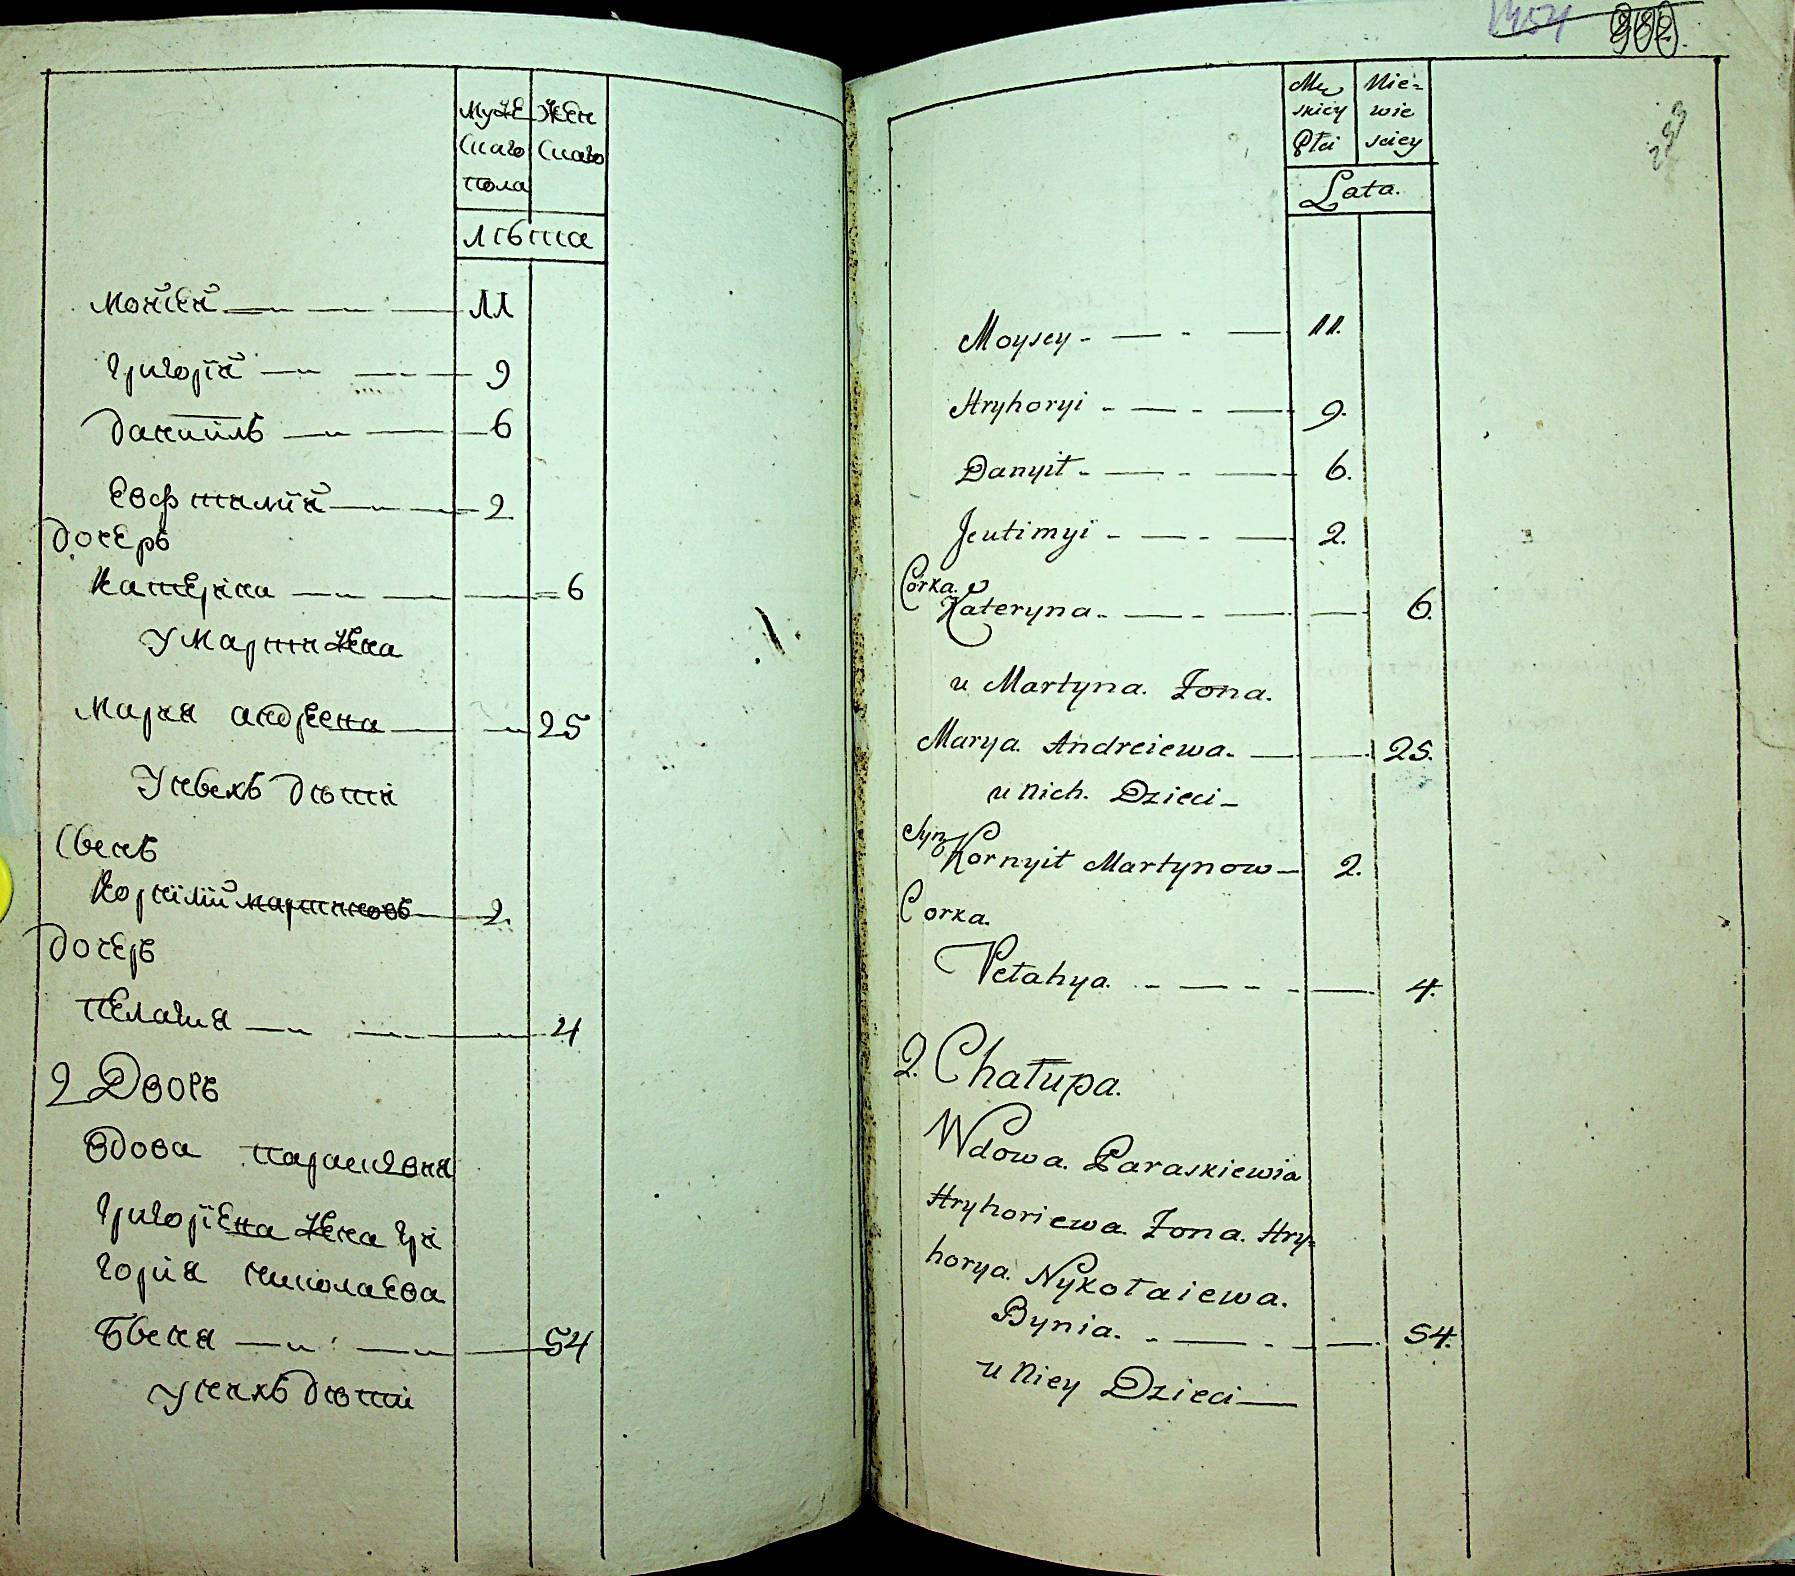 Муже Жен
скаго скаго
пола
лѣта
Мойсей 11
Григорій 9
Даниилъ 6
Евфтимій 2
Дочерь
Катерина 6
У Мартина жена
Мария Андреева 25
У нихъ дѣти
Сынъ
Корнілій Мартиновъ 2
Дочерь
Пелагия 4
2 Дворъ
Вдова Параскевия
Григоріева жена Гри
гория Николаева
Быня 54
У нихъ дѣти
902.
233
Mę Nie=
skiey wie
Płci sciey
Lata.
Moysey - — - — 11.
Hryhoryi - — - — 9.
Danyił - — - — 6.
Jeutimyi - — - — 2.
Corka.
Kateryna - — - — 6.
u Martyna. Żona.
Marya. Andreiewa. — 25.
u Nich. Dzieci —
Syn
Kornyił Martynow — 2.
Corka.
Pełahya. - — - — 4.
2. Chałupa.
Wdowa. Paraskiewia
Hryhoriewa. Żona. Hry=
horya. Nykołaiewa.
Bynia. - — - — 54.
u Niey Dzieci —